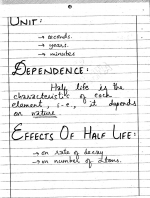 UNIT:
→ seconds.
→ years.
→ minutes
DEPENDENCE:
Half life is the
characteristic of each
element, i-e., it depends
on nature.
EFFECTS OF HALF LIFE:
→ on rate of decay
→ on number of atoms.